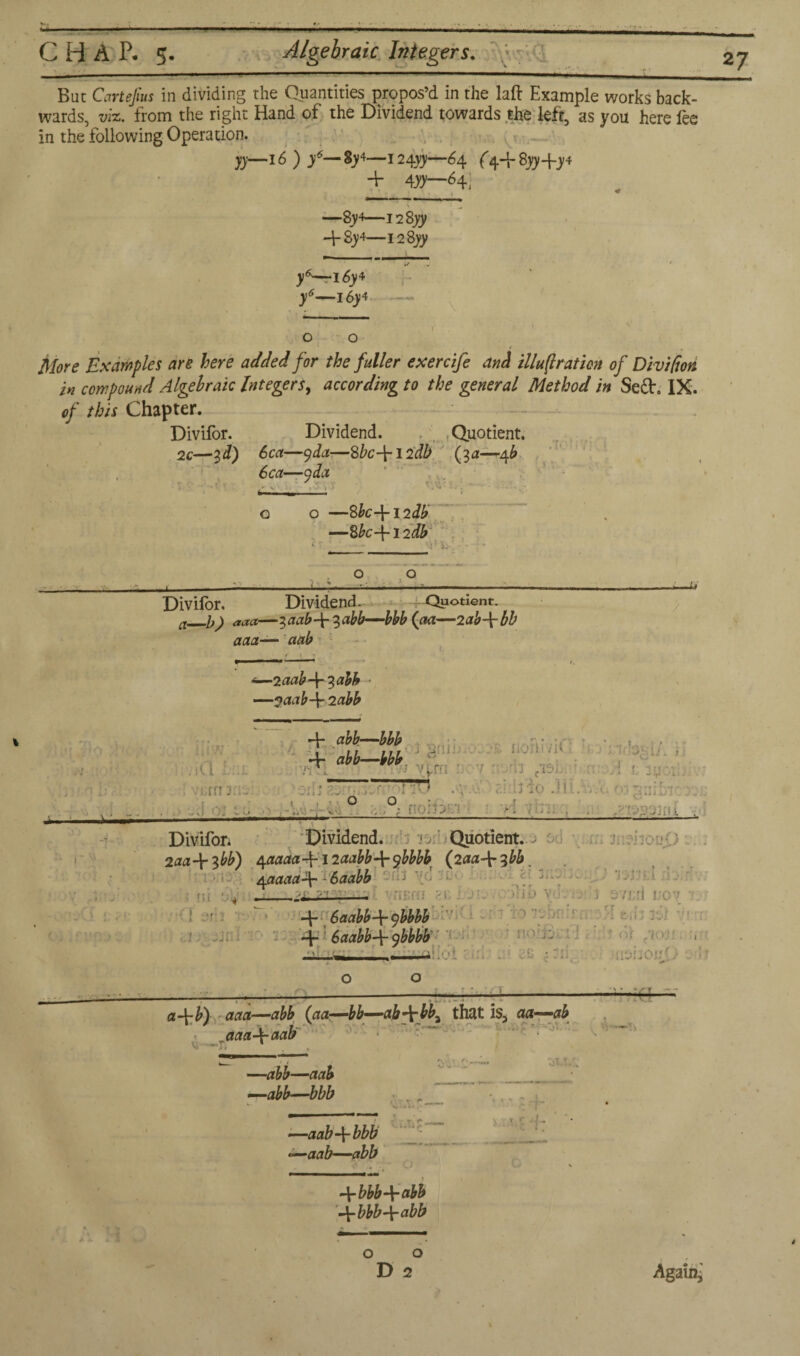 CHAP. 5. Algebraic Integers. 27
But Cartesius in dividing the Quantities propos'd in the last Example works back-
wards, viz. from the right Hand of the Dividend towards the left, as you here see
in the following Operation.
yy—16 ) y⁶—8y⁴—124yy—64 (4+8yy+y⁴
+ 4yy—64
—8y⁴—128yy
+8y⁴—128yy
y⁶—16y⁴
y⁶—16y⁴
o o
More Examples are here added for the fuller exercise and illustration of Division
in compound Algebraic Integers, according to the general Method in Sect. IX.
of this Chapter.
Divisor. Dividend. Quotient.
2c—3d) 6ca—9da—8bc+12db (3a—4b
6ca—9da
o o —8bc+12db
—8bc+12db
o o
Divisor. Dividend. Quotient.
a—b) aaa—3aab+3abb—bbb (aa—2ab+bb
aaa— aab
—2aab+3abb
—2aab+2abb
+ abb—bbb
+ abb—bbb
o o
Divisor. Dividend. Quotient.
2aa+3bb) 4aaaa+12aabb+9bbbb (2aa+3bb
4aaaa+ 6aabb
+ 6aabb+9bbbb
+ 6aabb+9bbbb
o o
a+b) aaa—abb (aa—bb—ab+bb, that is, aa—ab
aaa+aab
—abb—aab
—abb—bbb
—aab+bbb
—aab—abb
+bbb+abb
+bbb+abb
o o
D 2 Again,